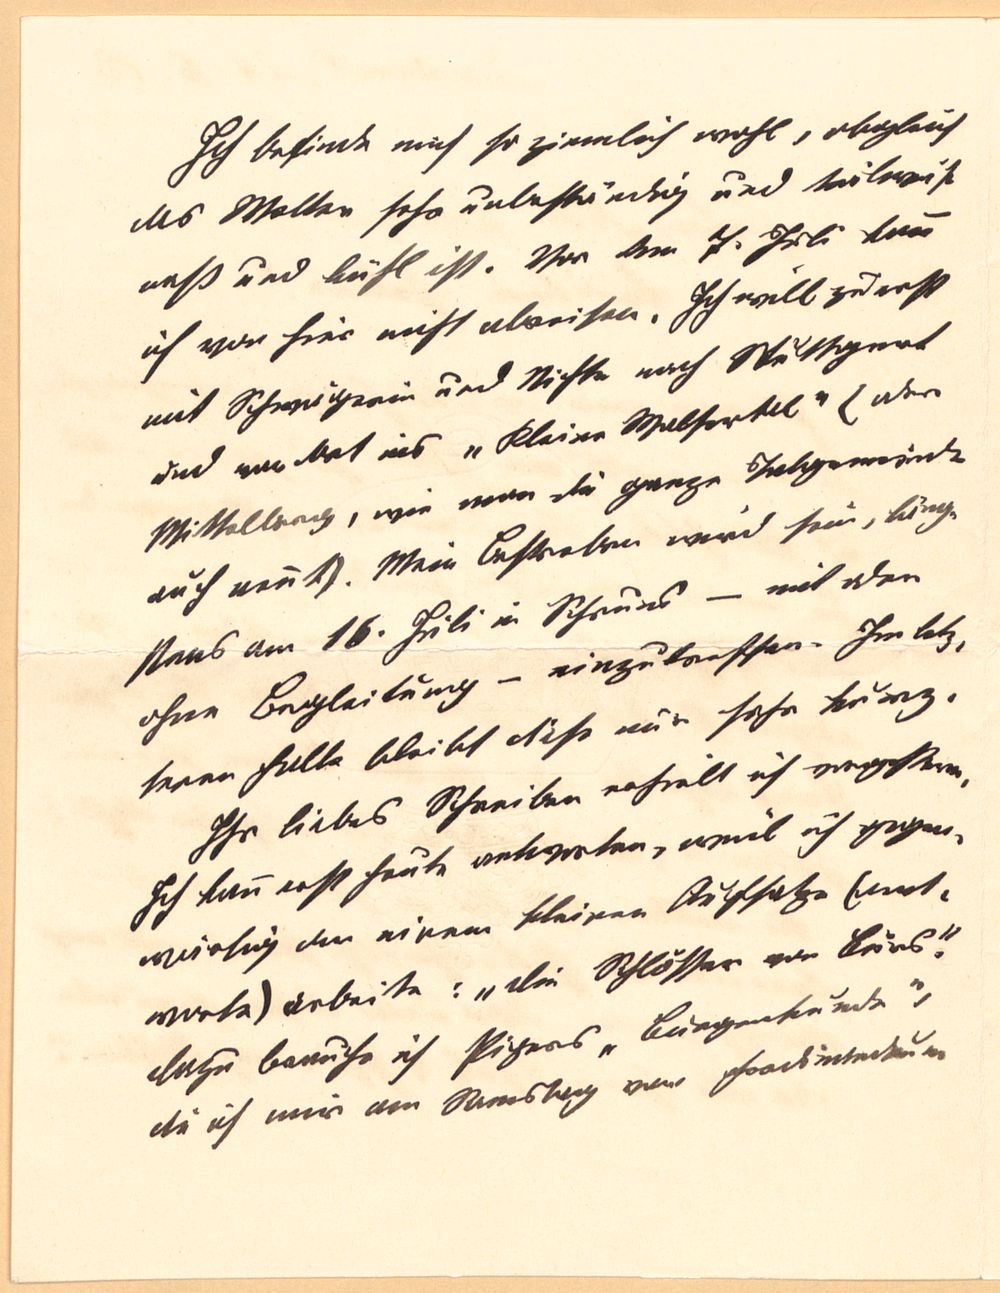 Ich befinde mich so ziemlich wohl, obgleich
das Wetter sehr unbeständig und teilweise
naß und kühl ist. Vor dem 7. Juli kann
ich von hier nicht abreisen. Ich will zuerst
mit Schwägerin und Nichte nach Stuttgart
und von dort ins „Kleine Walsertal" (oder
Mittelberg, wie man die ganze Talgemeinde
auch nennt). Mein Bestreben wird sein, läng-
stens am 16. Juli in Schruns — mit oder
ohne Begleitung — einzutreffen. Im letz-
teren Falle bleibt diese nur sehr kurz.
Ihr liebes Schreiben erhielt ich vorgestern,
Ich kann erst heute antworten, weil ich gegen-
wärtig an einem kleinen Aufsatze (Ant-
worte) arbeite: „die Schlösser von Bürs."
dazu brauche ich Pipers „Burgenkunde",
die ich mir am Samstag von